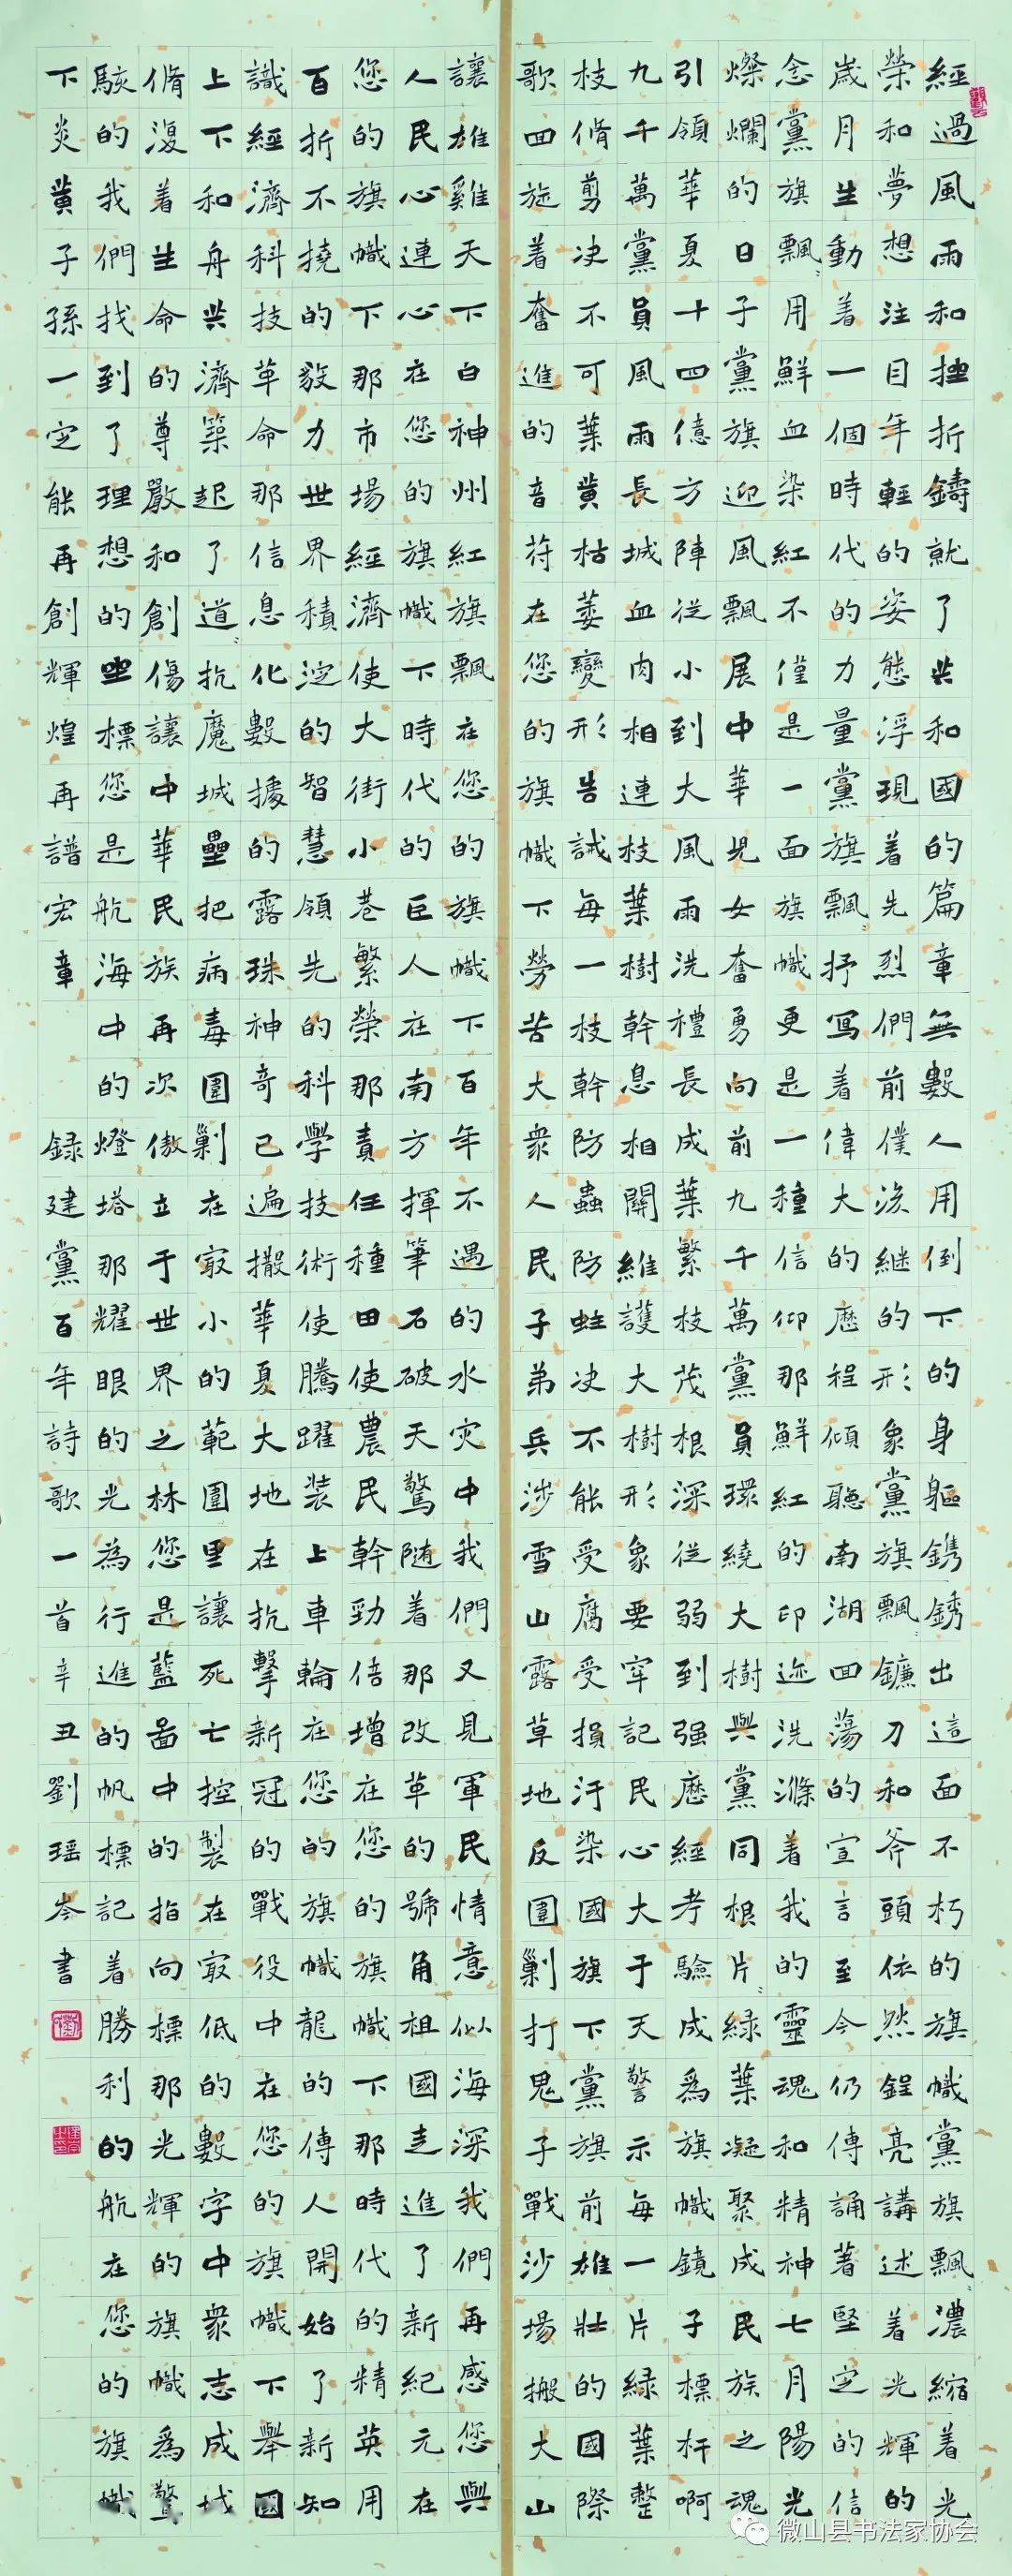 經過風雨和挫折鑄就了共和國的篇章無數人用倒下的身軀鐫銹出這面不朽的旗幟黨旗飄飄濃縮着光
榮和夢想注目年輕的姿態浮現着先烈們前僕後繼的形象黨旗飄飄鐮刀和斧頭依然錚亮講述着光輝的
歲月生動着一個時代的力量黨旗飄飄抒寫着偉大的歷程傾聽南湖回蕩的宣言至今仍傳誦著堅定的信
念黨旗飄飄用鮮血染紅不僅是一面旗幟更是一種信仰那鮮紅的印迹洗滌着我的靈魂和精神七月陽光
燦爛的日子黨旗迎風飄展中華兒女奮勇向前九千萬黨員環繞大樹與黨同根片片綠葉凝聚成民族之魂
引領華夏十四億方陣從小到大風雨洗禮長成葉繁枝茂根深從弱到强歷經考驗成為旗幟鏡子標杆啊
九千萬黨員風雨長城血肉相連枝葉樹幹息相關維護大樹形象要牢記民心大于天警示每一片綠葉整
枝脩剪决不可葉黄枯萎變形告誡每一枝幹防蟲防蛀决不能受腐受損汙染國旗下黨旗前雄壯的國際
歌回旋着奮進的音符在您的旗幟下勞苦大衆人民子弟兵涉雪山露草地反圍剿打鬼子戰沙場搬大山
讓雄雞天下白神州紅旗飄在您的旗幟下百年不遇的水灾中我們又見軍民情意似海深我們再感您與
人民心連心在您的旗幟下時代的巨人在南方揮筆石破天驚隨着那改革的號角祖國走進了新紀元在
您的旗幟下那市場經濟使大街小巷繁榮那責任種田使農民幹勁倍增在您的旗幟下那時代的精英用
百折不撓的毅力世界積淀的智慧領先的科學技術使騰躍裝上車輪在您的旗幟龍的傳人開始了新知
識經濟科技革命那信息化數據的露珠神奇已遍撒華夏大地在抗擊新冠的戰役中在您的旗幟下舉國
上下和舟共濟築起了道道抗魔城壘把病毒圍剿在最小的範圍里讓死亡控製在最低的數字中衆志成城
脩復着生命的尊嚴和創傷讓中華民族再次傲立于世界之林您是藍啚中的指向標那光輝的旗幟為驚
駭的我們找到了理想的坐標您是航海中的燈塔那耀眼的光為行進的帆標記着勝利的航在您的旗幟
下炎黄子孫一定能再創輝煌再譜宏章
録建黨百年詩歌一首辛丑劉瑶岑書
微山县书法家协会